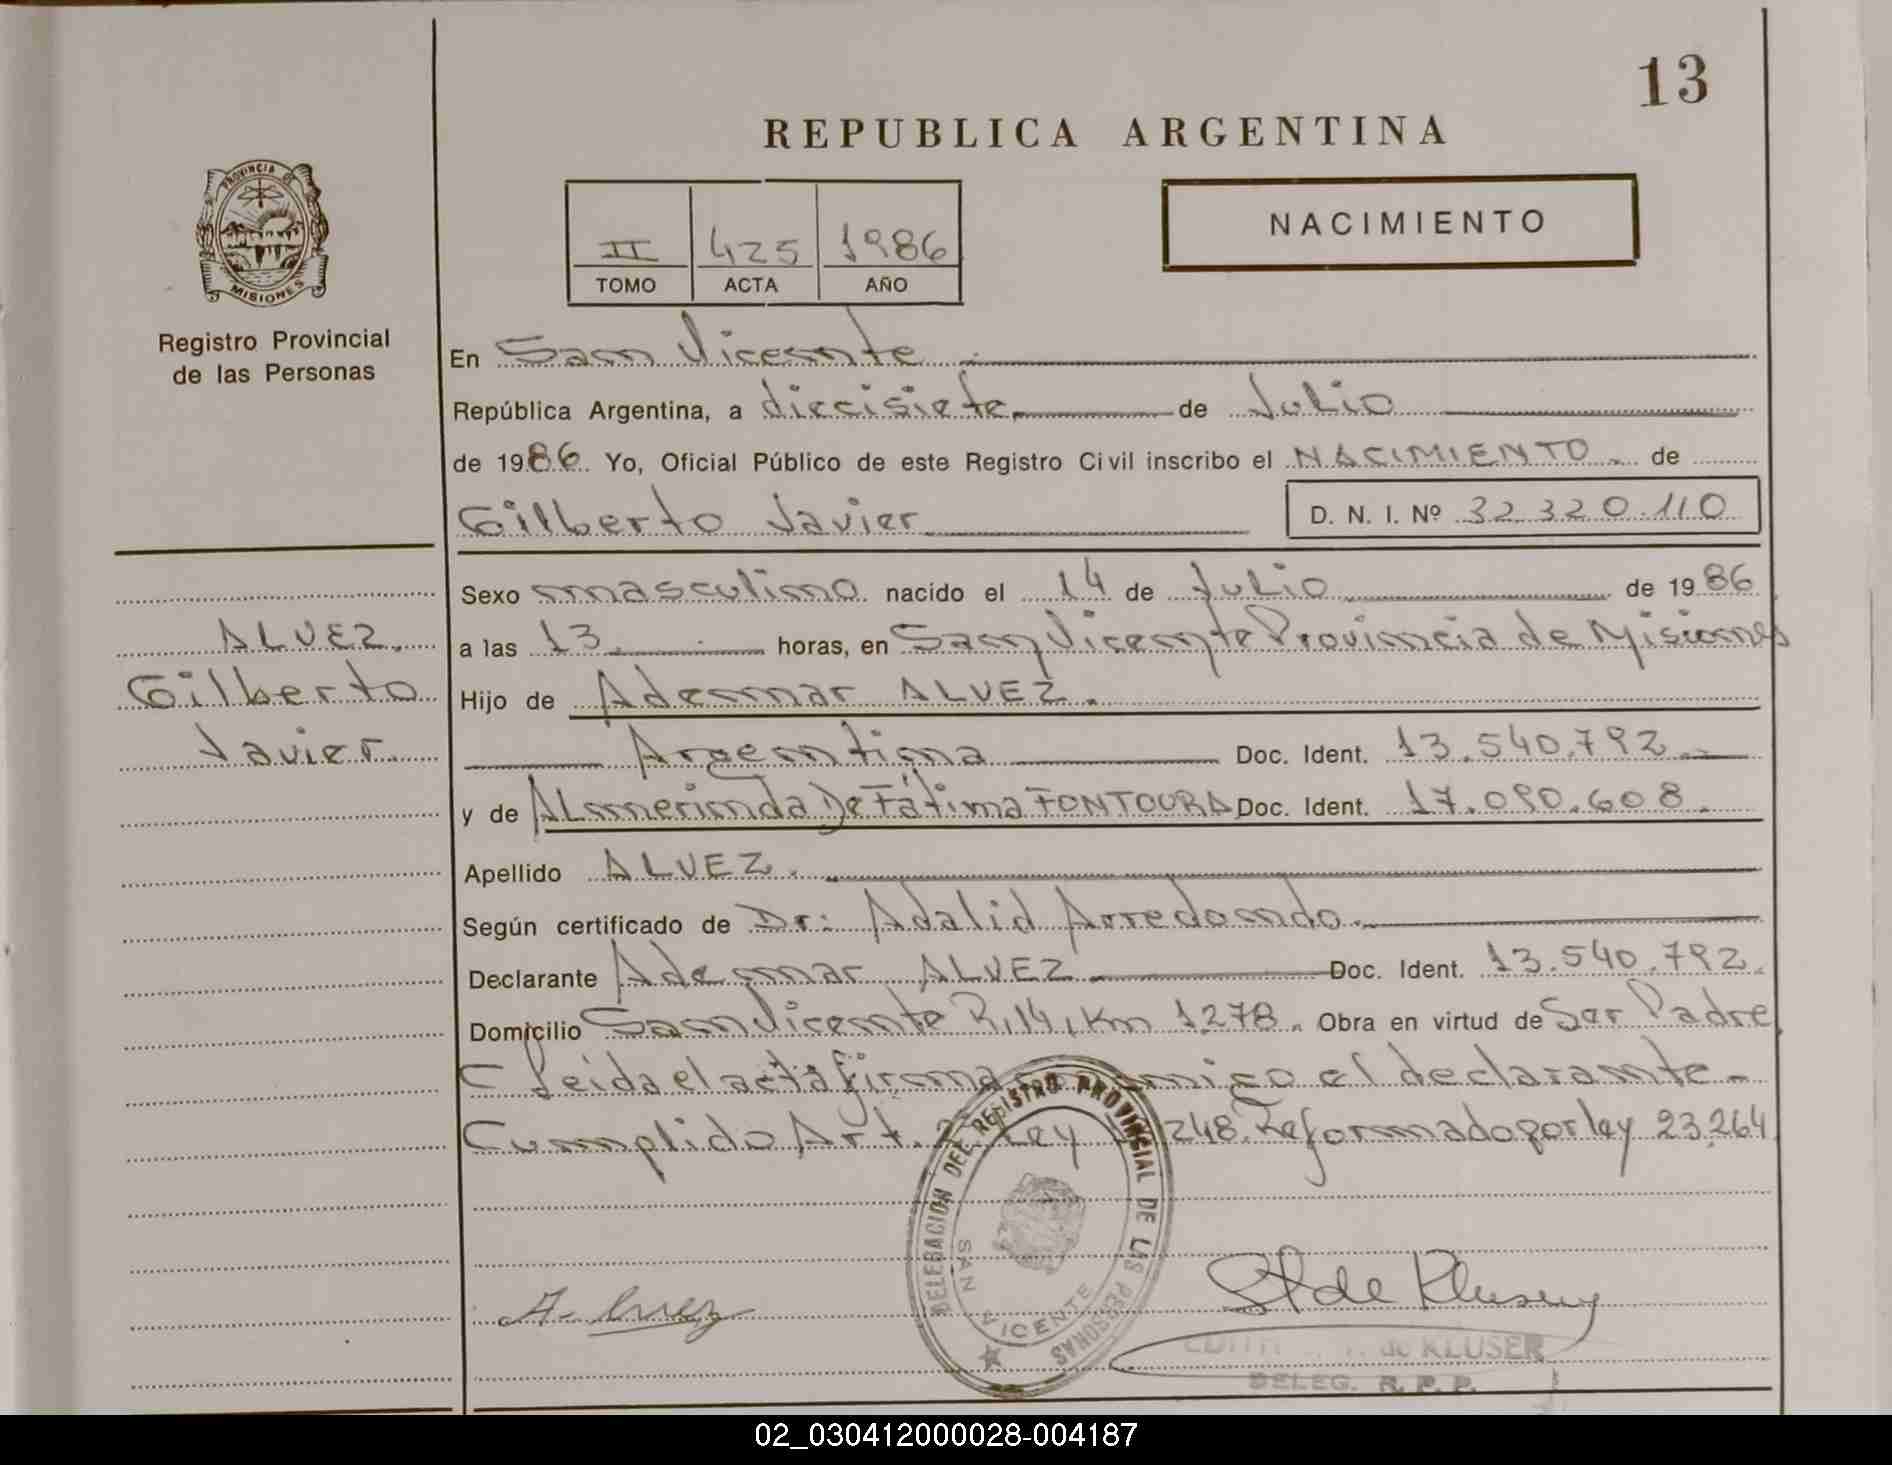 13
REPUBLICA ARGENTINA
PROVINCIA DE
MISIONES
Registro Provincial
de las Personas
II 425 1986
TOMO ACTA AÑO
NACIMIENTO
En San Vicente
República Argentina, a diecisiete de Julio
de 1986. Yo, Oficial Público de este Registro Civil inscribo el NACIMIENTO de
Gilberto Javier D. N. I. Nº 32.320.110
ALVEZ.
Gilberto
Javier.
Sexo masculino nacido el 14 de Julio de 1986
a las 13. horas, en San Vicente Provincia de Misiones
Hijo de Ademar ALVEZ.
Argentina Doc. Ident. 13.540.792.
y de ALmerinda De Fátima FONTOURA Doc. Ident. 17.090.608.
Apellido ALVEZ.
Según certificado de Dr: Adalid Arredondo.
Declarante Ademar ALVEZ Doc. Ident. 13.540.792.
Domicilio San Vicente R.14, Km 1278. Obra en virtud de Ser Padre
Leida el acta firma el declarante.
Cumplido Art. Ley 248. Reformado por ley 23.264
DELEGACION DEL REGISTRO PROVINCIAL DE LAS PERSONAS
SAN VICENTE
A. Alvez
de Kluser
EDITH de KLUSER
DELEG. R. P. P.
02_030412000028-004187